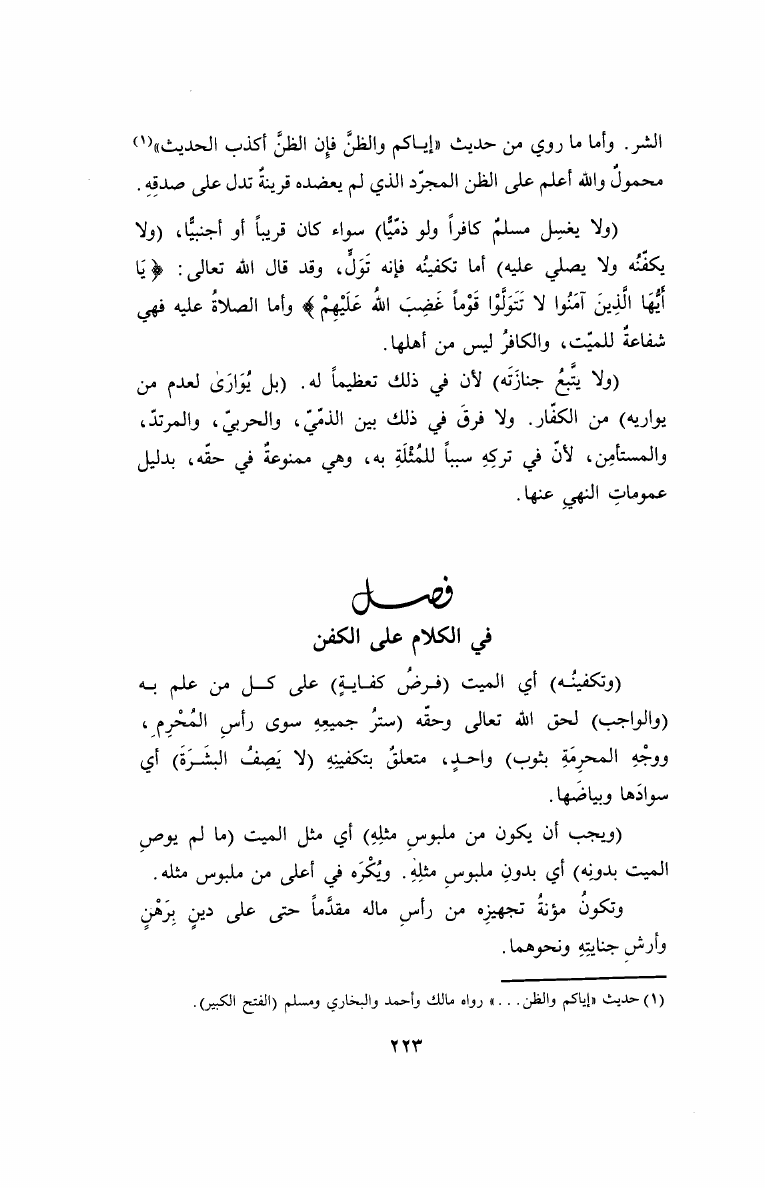 الشر. وأما ما روي من حديث «إيـاكم والظنَّ فإِن الظنَّ أكذب الحديث»(١)
محمولٌ والله أعلم على الظن المجرّد الذي لم يعضده قرينةٌ تدل على صدقِهِ.
(ولا يغسِل مسلمٌ كافراً ولو ذمّيًّا) سواء كان قريباً أو أجنبيًّا، (ولا
يكفّنُه ولا يصلي عليه) أما تكفينُه فإنه تَوَلٍّ، وقد قال الله تعالى: ﴿يَا
أَيُّهَا الَّذِينَ آمَنُوا لا تَتَوَلَّوْا قَوْماً غَضِبَ اللهُ عَلَيْهِمْ﴾ وأما الصلاةُ عليه فهي
شفاعةٌ للميّت، والكافرُ ليس من أهلها.
(ولا يتَّبعُ جنازَتَه) لأن في ذلك تعظيماً له. (بل يُوَارَىٰ لعدم من
يواريه) من الكفّار. ولا فرقَ في ذلك بين الذمّيّ، والحربيّ، والمرتدّ،
والمستأمِن، لأنّ في تركِهِ سبباً للمُثْلَةِ به، وهي ممنوعةٌ في حقّه، بدليل
عموماتِ النهيِ عنها.
فصــل
في الكلام على الكفن
(وتكفينُـه) أي الميت (فـرضُ كفـايـةٍ) على كــل من علم بــه
(والواجب) لحق الله تعالى وحقّه (سترُ جميعِهِ سوى رأسِ المُحْرِمِ،
ووجْهِ المحرمَةِ بثوب) واحـدٍ، متعلقٌ بتكفينِهِ (لا يَصِفُ البشَـرَةَ) أي
سوادَها وبياضَها.
(ويجب أن يكون من ملبوسِ مثلِهِ) أي مثل الميت (ما لم يوصِ
الميت بدونِه) أي بدونِ ملبوسِ مثلِهِ. ويُكْرَه في أعلى من ملبوس مثله.
وتكونُ مؤنةُ تجهيزِه من رأسِ ماله مقدَّماً حتى على دينٍ بِرَهْنٍ
وأرشِ جنايتِهِ ونحوهما.
(١) حديث «إياكم والظن...» رواه مالك وأحمد والبخاري ومسلم (الفتح الكبير).
٢٢٣